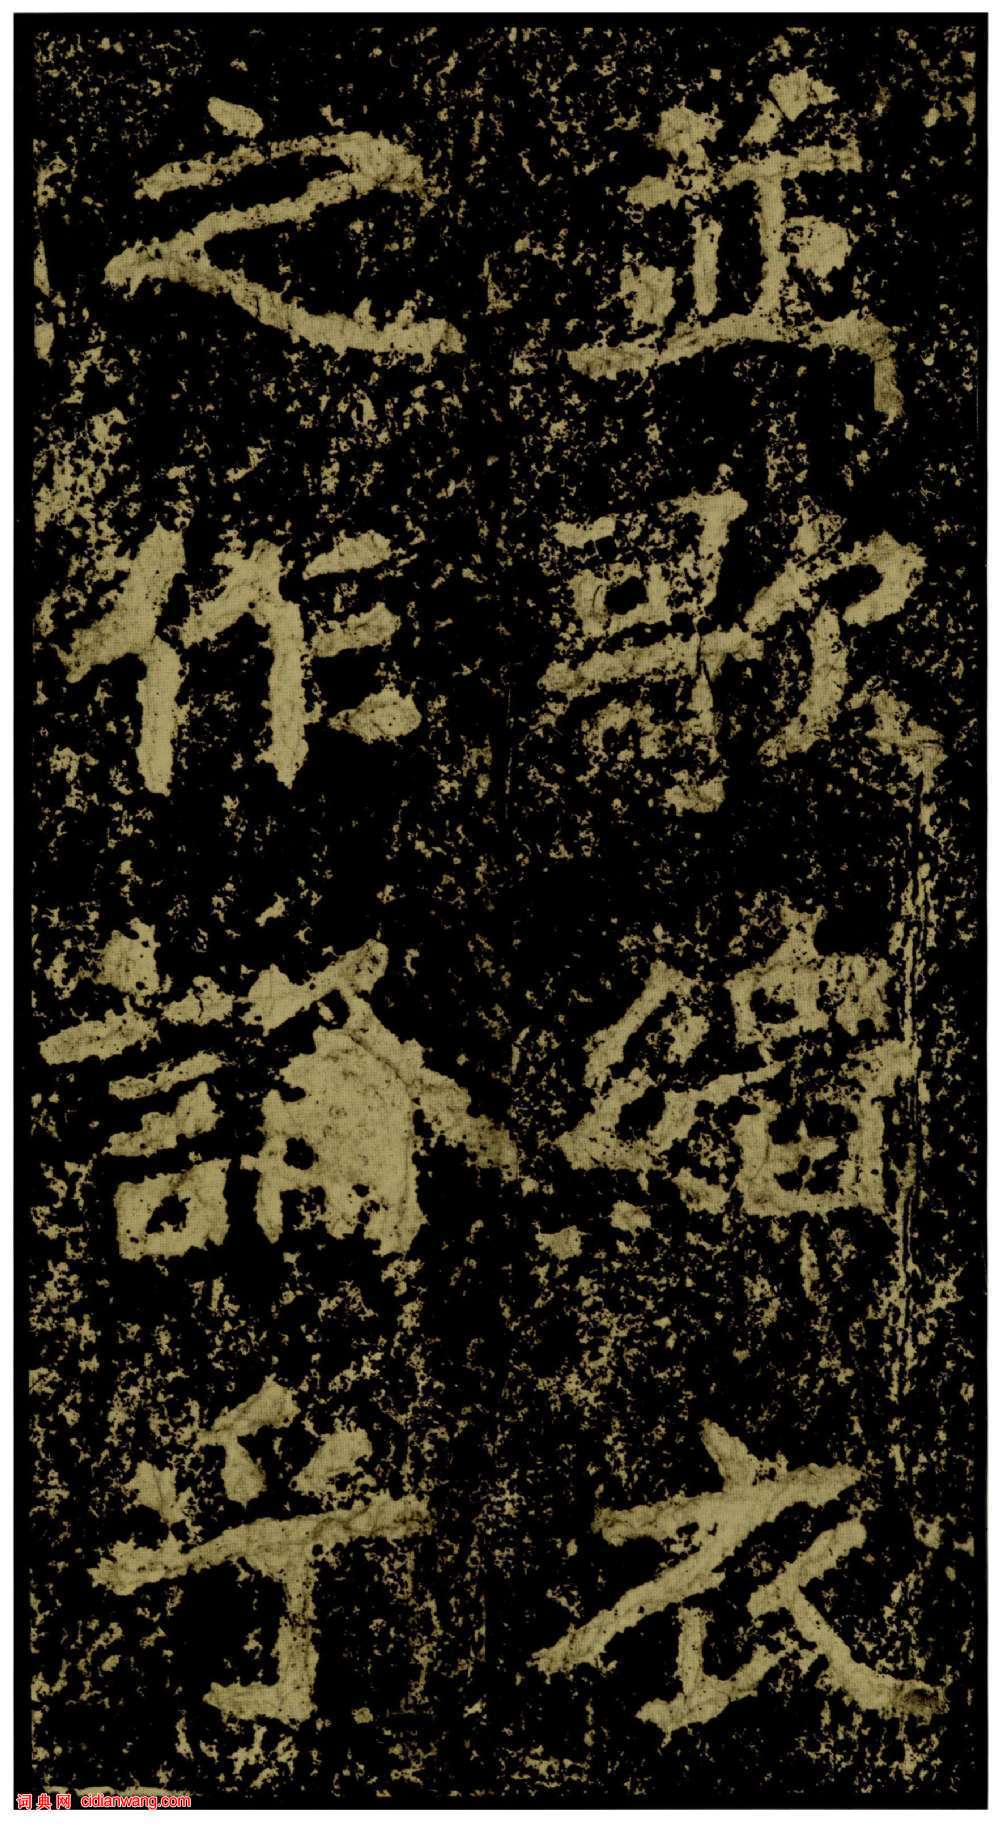 並歌緇衣
之作論乎
词典网 cidianwang.com